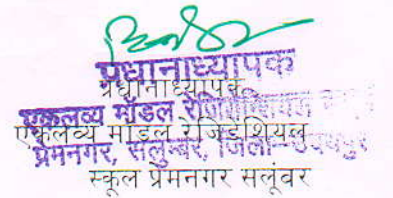 प्रधानाध्यापक
प्रधानाध्यापक
एकलव्य मॉडल रेजिडेंशियल
एकलव्य माडल रेजिडेंशियल
प्रेमनगर, सलुम्बर, जिला-उदयपुर
स्कूल प्रेमनगर सलूंबर